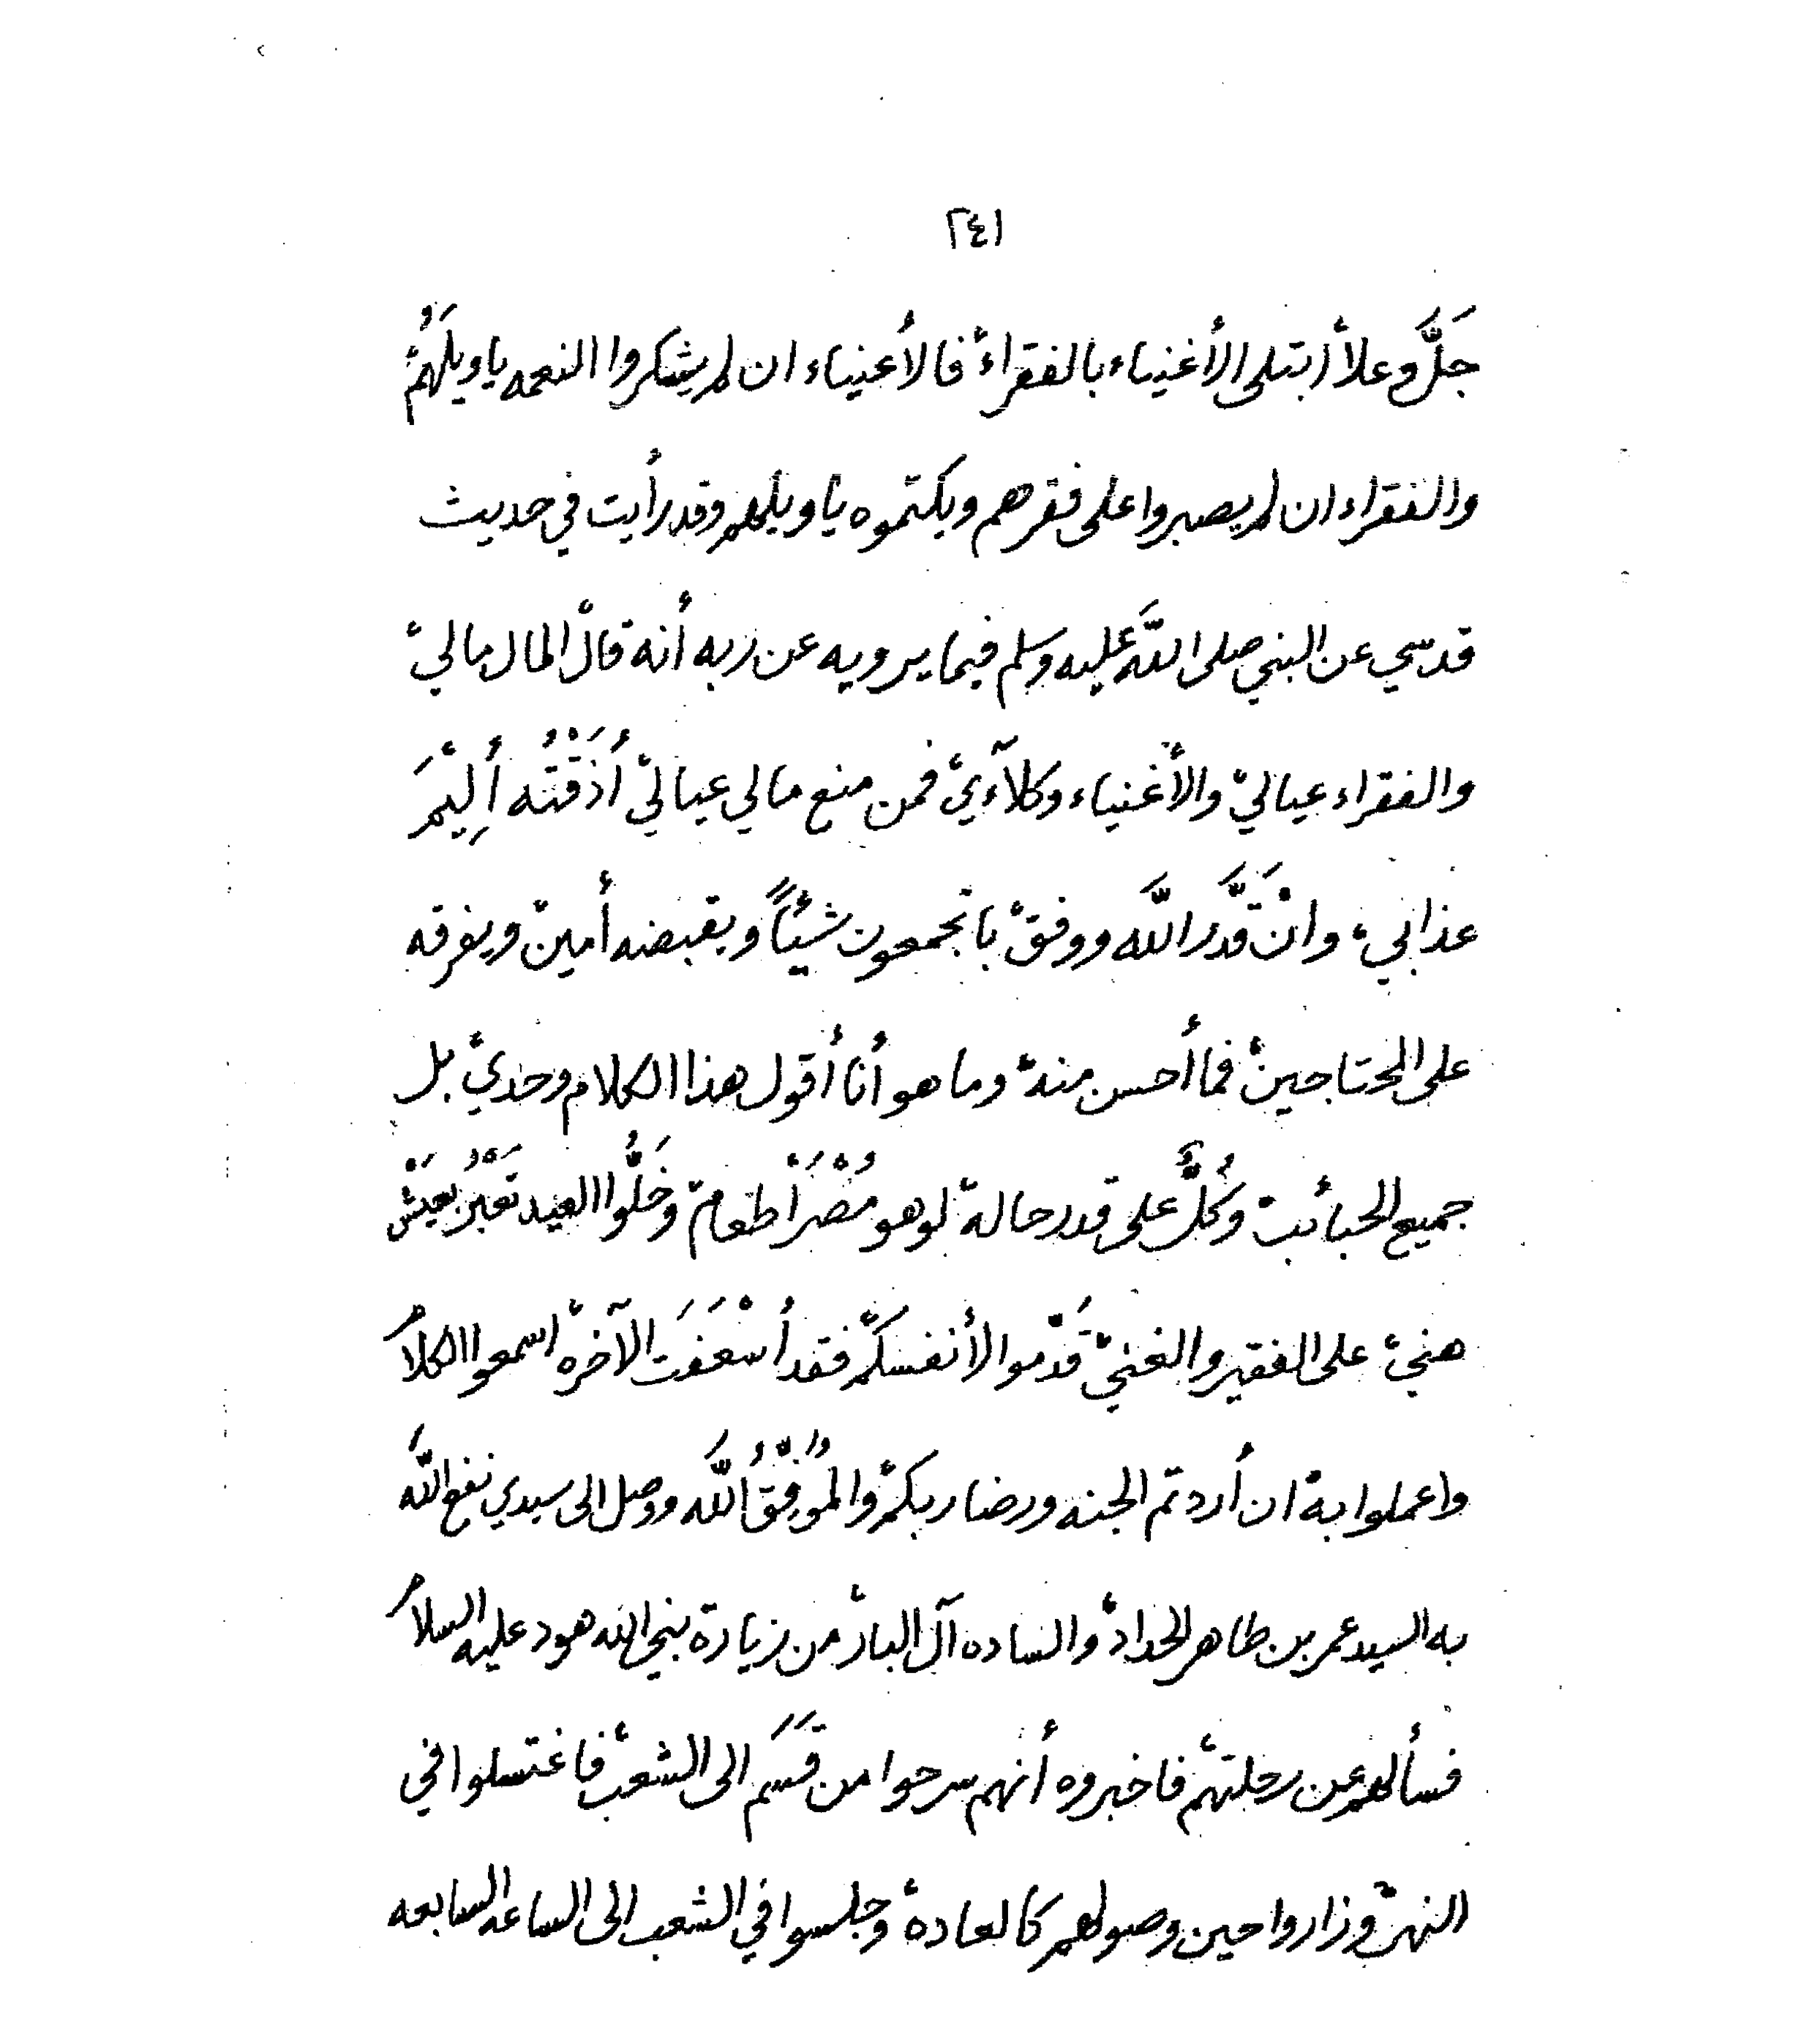 ٢٤١
جَلَّ وعلا أبتلى الأغنياء بالفقراء فالأغنياء ان لم يشكروا النعمه ياويلَهُمْ
والفقراء ان لم يصبروا على فقرهم ويكتموه ياويلهم وقد رأيت في حديث
قدسي عن النبي صلى اللَّه عليه وسلم فيما يرويه عن ربه أنه قالْ المال ماليْ
والفقراء عياليْ والأغنياء وكلآءيْ فمن منع مالي عياليْ أُذَقْتُه أَلِيْمَ
عذابي، وانْ قَدَّر اللَّه ووفقْ باتجمعون شيئاً ويقبضه أمينْ ويفرقه
على المحتاجينْ فما أحسن منهْ وما هو أنا أقول هذا الكلام وحديْ بل
جميع الحبائبْ وكُلٌّ على قدر حالهْ لو هو مُصْرَاْ طعامْ وخَلُّوا العيد تَعْبُرْ بعَيْش
هنيْ على الفقير والغنيْ قَدْموا لأنفسكَمْ فقد أسْعَفَت الآخرهْ اسمعوا الكلامْ
واعملوا بهْ ان أردتم الجنه ورضا ربكمْ والمُوَفِّقُ اللَّه ووصل الى سيدي نفع اللَّه
به السيد عمر بن طاهر الحدادْ والساده آل البارْ من زيارة نبي الله هود عليه السلامْ
فسألهم عن رحلتهمْ فاخبروه أنهم سرحوا من قَسَم الى الشعبْ فاغتسلوا في
النهرْ وزاروا حين وصولهم كالعادهْ وجلسوا في الشعب الى الساعه السابعه